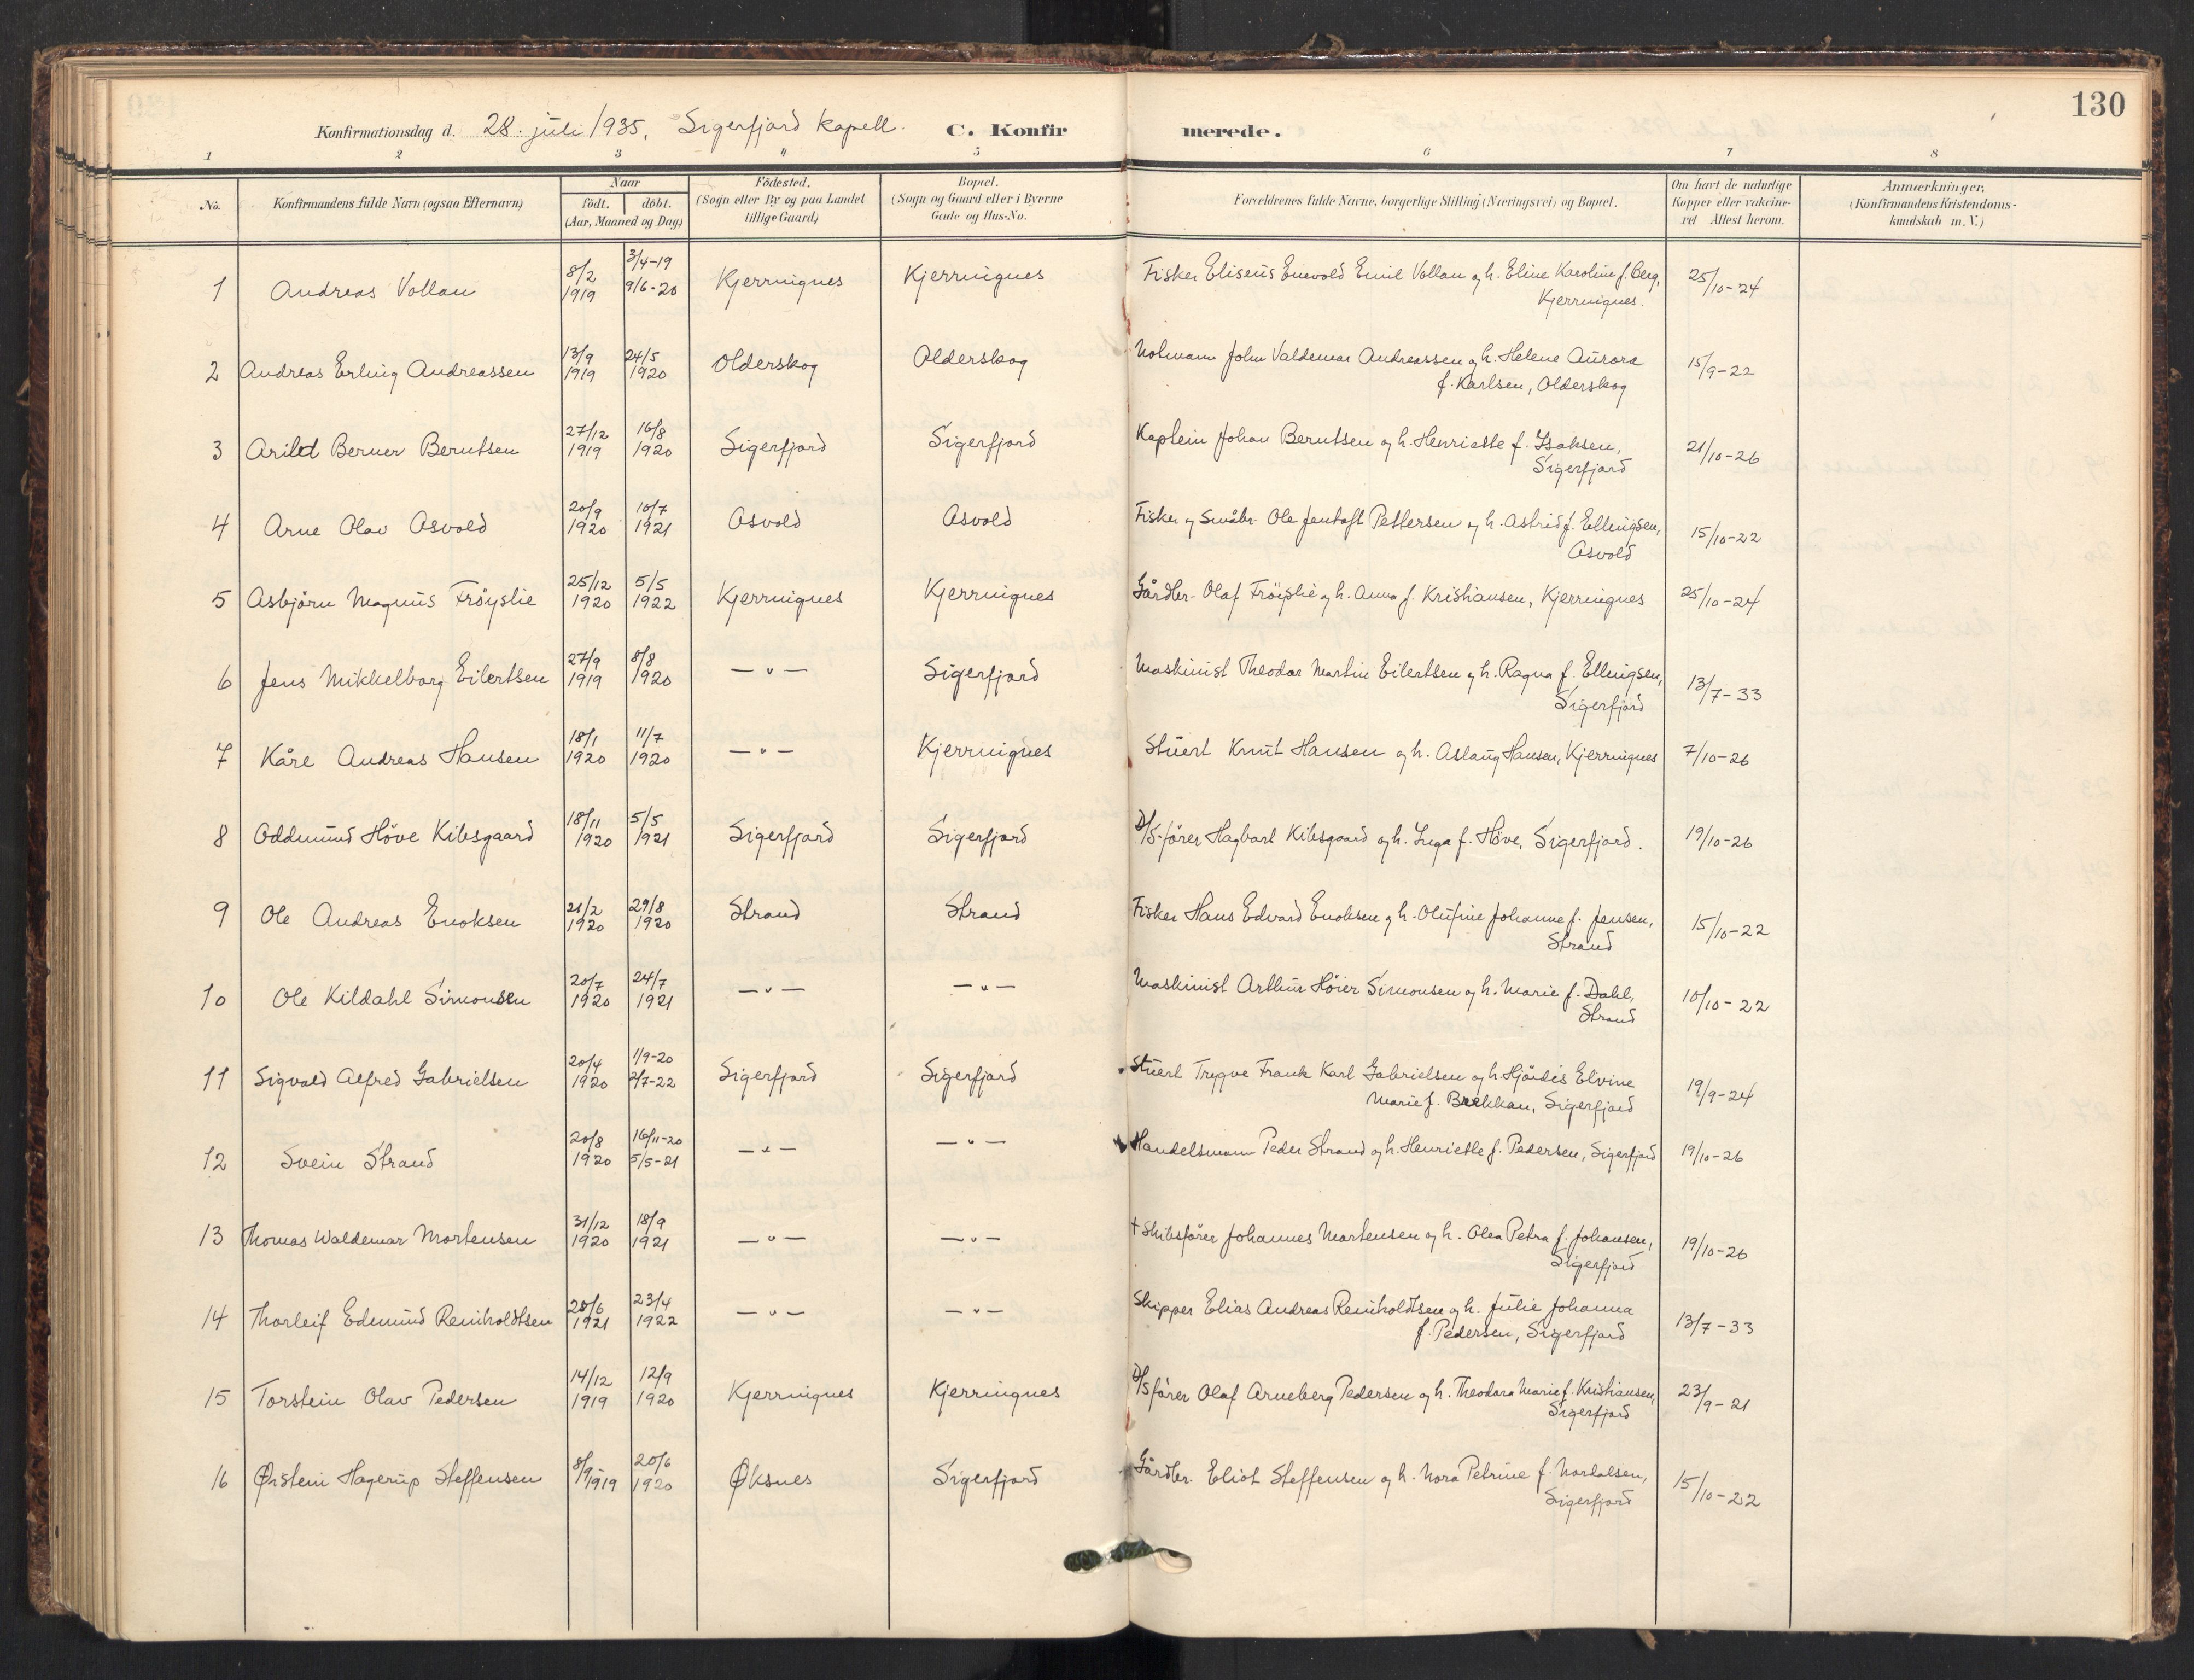 130
Konfirmationsdag d. 28. juli 1935, Sigerfjord kapell. C. Konfirmerede.
1 2 3 4 5 6 7 8
No. Konfirmandens fulde Navn (ogsaa Efternavn) Naar födt. döbt. (Aar, Maaned og Dag) Födested. (Sogn eller By og paa Landet tillige Gaard) Bopæl. (Sogn og Gaard eller i Byerne Gade og Hus-No. Forældrenes fulde Navne, borgerlige Stilling (Næringsvei) og Bopæl. Om havt de naturlige Kopper eller vakcineret Attest herom. Anmærkninger. (Konfirmandens Kristendomskundskab m. V.)
1 Andreas Vollan 8/2 1919 3/4-19 9/6-20 Kjerringnes Kjerringnes Fisker Eliseus Enevold Emil Vollan og h. Eline Karoline f. Berg, Kjerringnes. 25/10-24
2 Andreas Erling Andreassen 13/9 1919 24/5 1920 Olderskog Olderskog Notmann John Valdemar Andreassen og h. Helene Aurora f. Karlsen, Olderskog 15/9-22
3 Arild Berner Berntsen 27/12 1919 16/8 1920 Sigerfjord Sigerfjord Kaptein Johan Berntsen og h. Henriette f. Isaksen, Sigerfjord 21/10-26
4 Arne Olav Osvold 20/9 1920 10/7 1921 Osvold Osvold Fisker og Småbr. Ole Jentoft Pettersen og h. Astrid f. Ellingsen, Osvold 15/10-22
5 Asbjörn Magnus Fröyslie 25/12 1920 5/5 1922 Kjerringnes Kjerringnes Gårdbr. Olaf Fröislie og h. Anna f. Kristiansen, Kjerringnes 25/10-24
6 Jens Mikkelborg Eilertsen 27/9 1919 8/8 1920 — " — Sigerfjord Maskinist Theodor Martin Eilertsen og h. Ragna f. Ellingsen, Sigerfjord 13/7-33
7 Kåre Andreas Hansen 18/1 1920 11/7 1920 — " — Kjerringnes Stuert Knut Hansen og h. Aslaug Hansen, Kjerringnes 7/10-26
8 Oddmund Höve Kibsgaard 18/11 1920 5/5 1921 Sigerfjord Sigerfjord D/S-förer Hagbart Kibsgaard og h. Inga f. Höve, Sigerfjord. 19/10-26
9 Ole Andreas Enoksen 21/2 1920 29/8 1920 Strand Strand Fisker Hans Edvard Enoksen og h. Olufine Johanne f. Jensen, Strand 15/10-22
10 Ole Kildahl Simonsen 20/7 1920 24/7 1921 — " — — " — Maskinist Arthur Höier Simonsen og h. Marie f. Dahl, Strand 10/10-22
11 Sigvald Alfred Gabrielsen 20/4 1920 1/9-20 2/7-22 Sigerfjord Sigerfjord Stuert Trygve Frank Karl Gabrielsen og h. Hjördis Elvine Marie f. Brekkan, Sigerfjord 19/9-24
12 Svein Strand 20/8 1920 16/11-20 5/5-21 — " — — " — Handelsmann Peder Strand og h. Henriette f. Pedersen, Sigerfjord 19/10-26
13 Thomas Waldemar Mortensen 31/12 1920 18/9 1921 — " — — " — † Skibsförer Johannes Mortensen og h. Olea Petra f. Johansen, Sigerfjord 19/10-26
14 Thorleif Edmund Reinholdtsen 28/6 1921 23/4 1922 — " — — " — Skipper Elias Andreas Reinholdtsen og h. Julie Johanna f. Pedersen, Sigerfjord 13/7-33
15 Torstein Olav Pedersen 14/12 1919 12/9 1920 Kjerringnes Kjerringnes D/S förer Olaf Arneberg Pedersen og h. Theodora Marie f. Kristiansen, Sigerfjord 23/9-21
16 Øistein Hagerup Steffensen 8/9 1919 20/6 1920 Øksnes Sigerfjord Gårdbr. Eliot Steffensen og h. Nora Petrine f. Sigerfjord 15/10-22